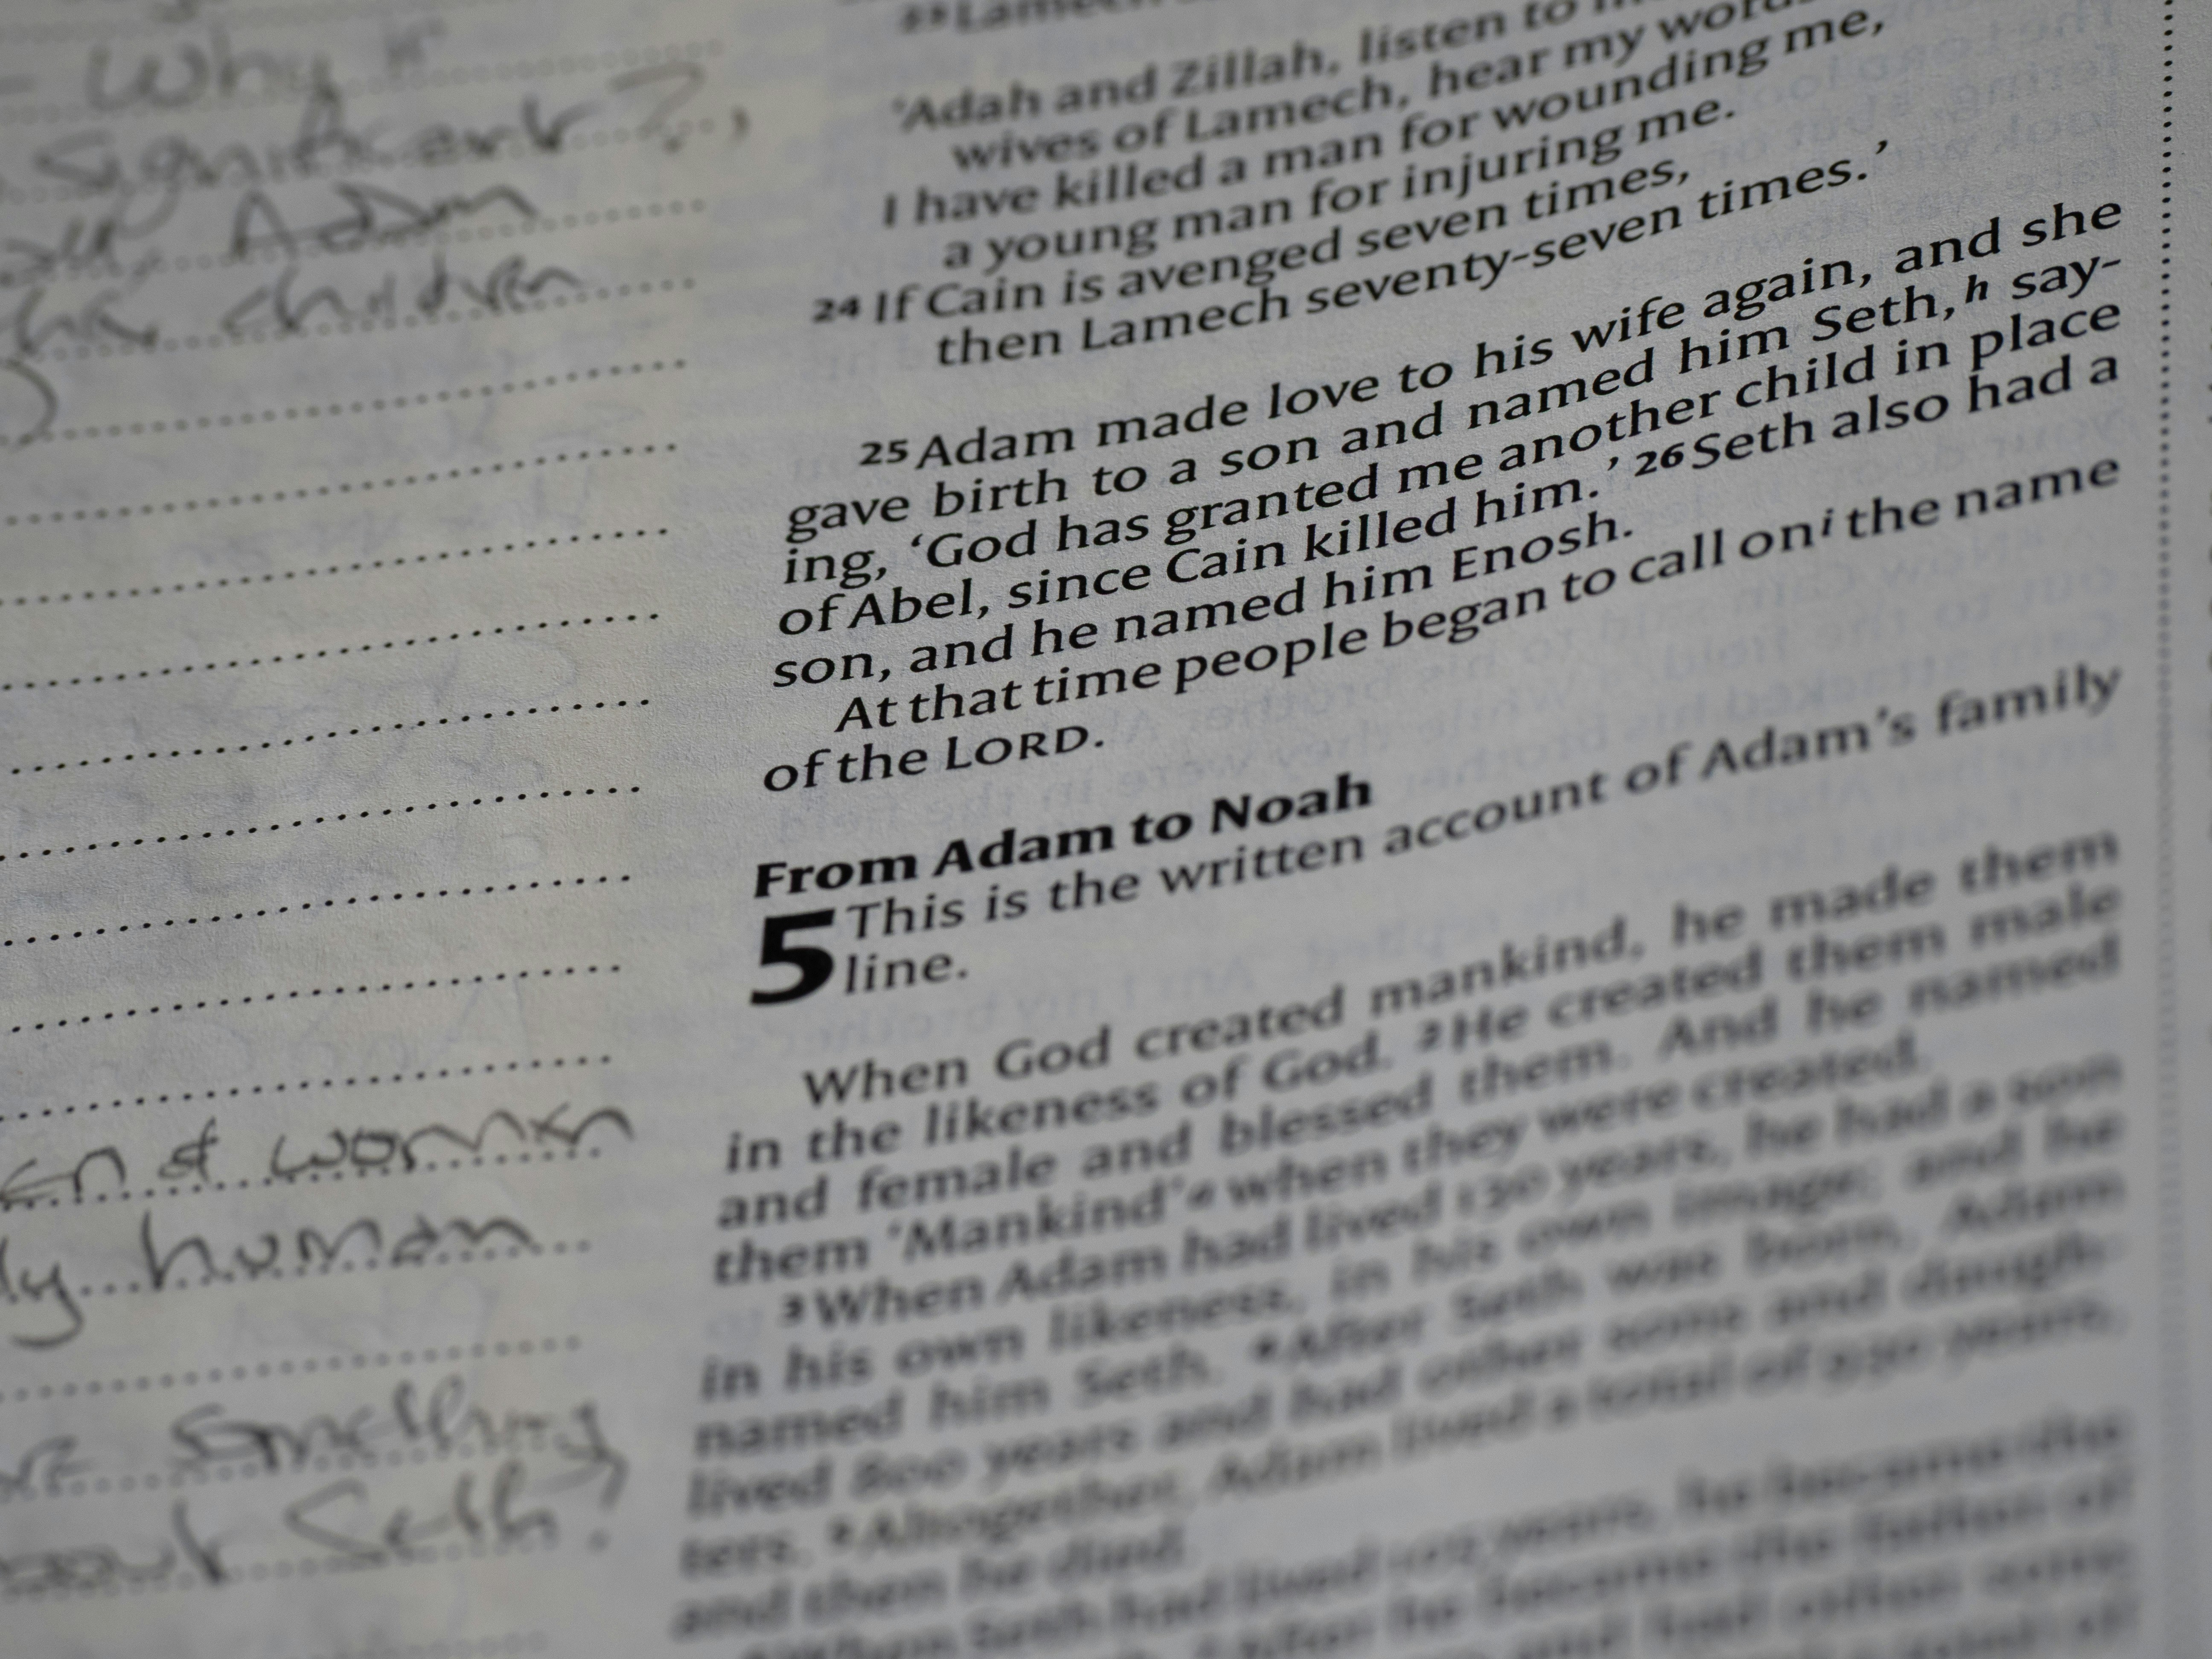 - Why is
significant?
Adam
children
en & women
ly human
something
about Seth?
23 Lamech
'Adah and Zillah, listen to
wives of Lamech, hear my words
I have killed a man for wounding me,
a young man for injuring me.
24 If Cain is avenged seven times,
then Lamech seventy-seven times.’
25 Adam made love to his wife again, and she
gave birth to a son and named him Seth,h say-
ing, ‘God has granted me another child in place
of Abel, since Cain killed him.’ 26 Seth also had a
son, and he named him Enosh.
At that time people began to call oni the name
of the LORD.
From Adam to Noah
5 This is the written account of Adam’s family
line.
When God created mankind, he made them
in the likeness of God. 2 He created them male
and female and blessed them. And he named
them ‘Mankind’a when they were created.
3 When Adam had lived 130 years, he had a son
in his own likeness, in his own image; and he
named him Seth. 4 After Seth was born, Adam
lived 800 years and had other sons and daugh-
ters. 5 Altogether, Adam lived a total of 930 years,
and then he died.
6 When Seth had lived 105 years, he became the
he became the father of
and had other sons